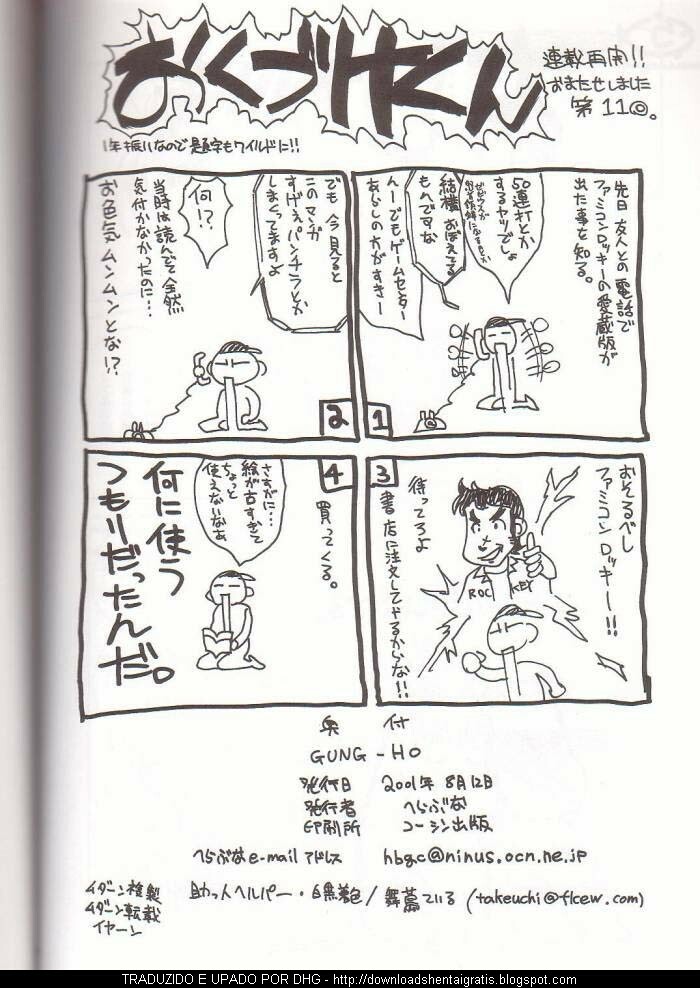 おくづけくん
連載再開!!
おまたせしました
第11回。
1年振りなので題字もワイルドに!!
先日友人との電話で
ファミコンロッキーの愛蔵版が
出た事を知る。
50連打とか
するヤツでしょ
結構おぼえてる
もんですな
んーでもゲームセンター
あらしの方がすきー
1
でも今見ると
このマンガ
すげえパンチラとか
しまくってますよ
何!?
当時は読んでて全然
気付かなかったのに…
お色気ムンムンとな!?
2
おそるべし
ファミコンロッキー!!
ROC KEY
待ってろよ
書店に注文してやるからな!!
3
買ってくる。
さすがに…
絵が古すぎて
ちょっと
使えないなあ
何に使う
つもりだったんだ。
4
奥付
GUNG-HO
発行日 2001年8月12日
発行者 へらぶな
印刷所 コーシン出版
へらぶなe-mailアドレス hbgc@ninus.ocn.ne.jp
助っ人ヘルパー・白無着色/舞蔦ている (takeuchi@flcew.com)
イダーン複製
ムダーン転載
イヤーン
TRADUZIDO E UPADO POR DHG - http://downloadshentaigratis.blogspot.com